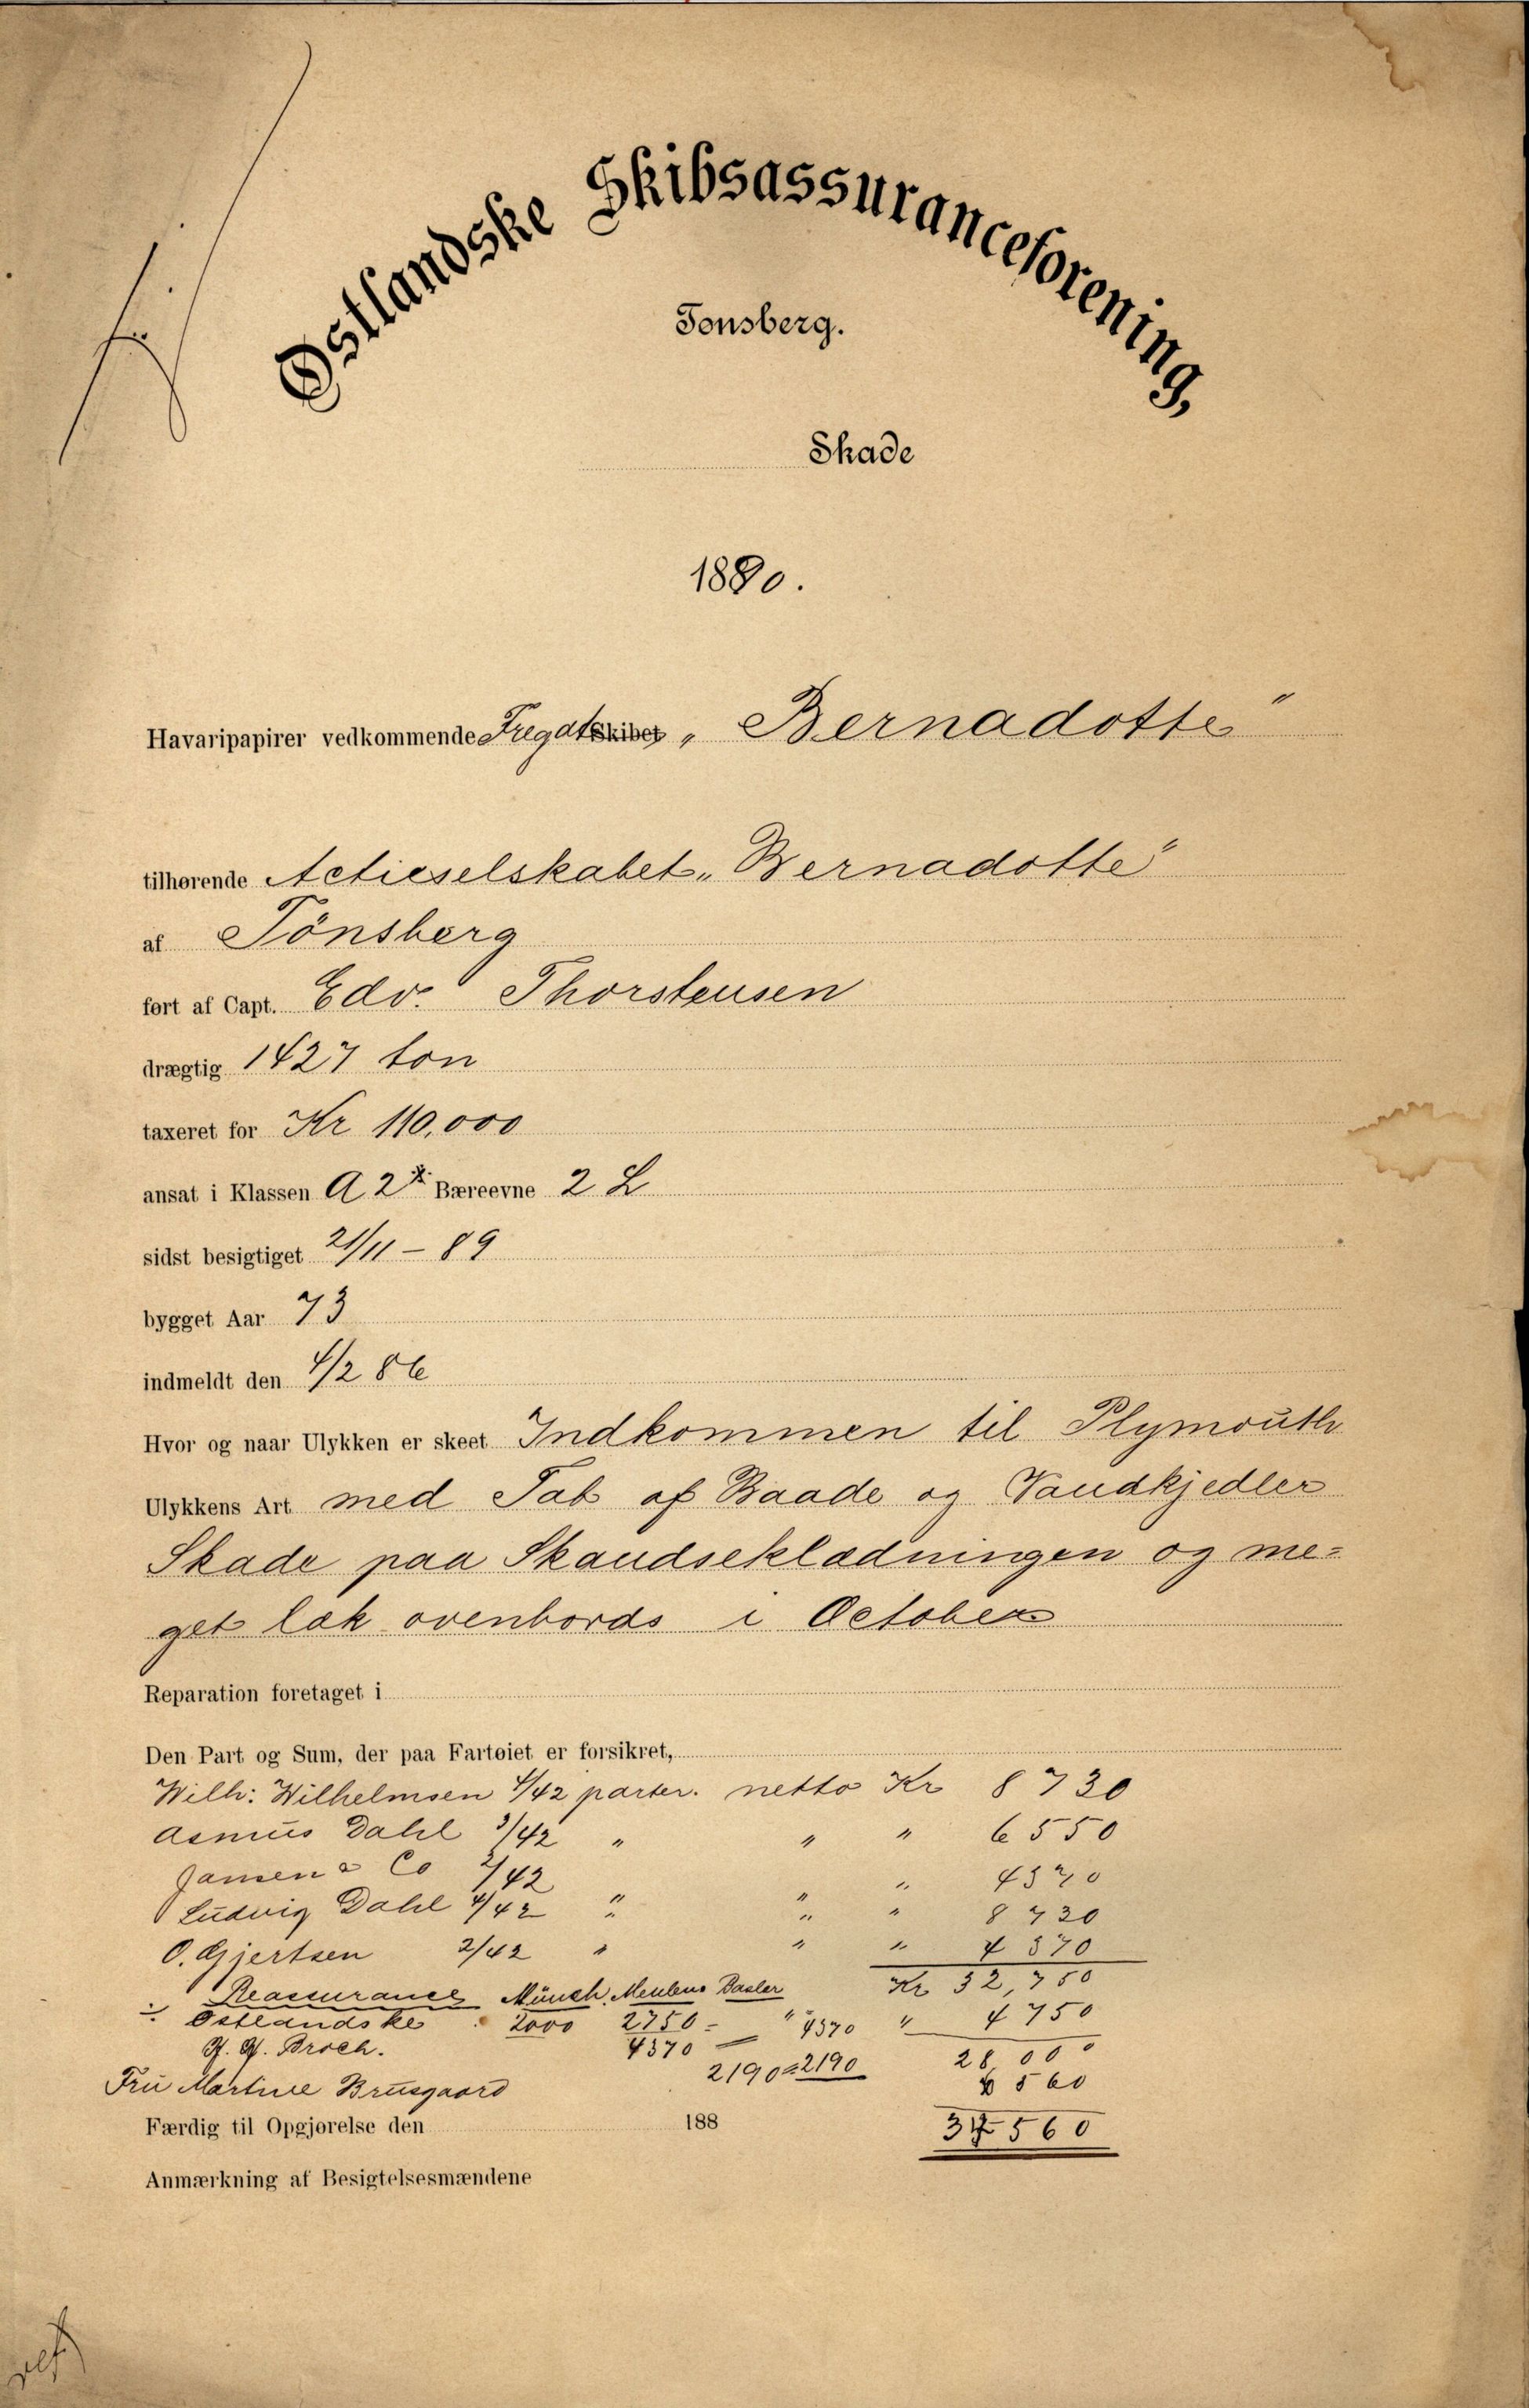 Østlandske Skibsassuranceforening,
Tønsberg.
Skade
1890.
Havaripapirer vedkommende Fregatskibet „Bernadotte"
tilhørende Actieselskabet „Bernadotte"
af Tönsberg
ført af Capt. Edv. Thorstensen
drægtig 1427 ton
taxeret for Kr 110,000
ansat i Klassen A 2 Bæreevne 2 L
sidst besigtiget 21/11 - 89
bygget Aar 73
indmeldt den 4/2 86
Hvor og naar Ulykken er skeet Indkommen til Plymouth
Ulykkens Art med Tab af Baade og Vandkjedler
Skade paa Skandseklædningen og me=
get læk ovenbords i October
Reparation foretaget i
Den Part og Sum, der paa Fartøiet er forsikret,
Wilh: Wilhelmsen 4/42 parter. netto Kr 8730
Asmus Dahl 3/42 " " " 6550
Jansen & Co 2/42 " 4370
Ludvig Dahl 4/42 " " " 8730
O. Gjertsen 2/42 " " " 4370
Kr 32,750
Reassurance Münch. Meulens Basler
÷ Østlandske 2000 2750 = " 4750
4370
G. G. Broch. 4370 28,000
Fru Martine Brusgaard 2190 = 2190 6560
Færdig til Opgjørelse den 188
34560
Anmærkning af Besigtelsesmændene